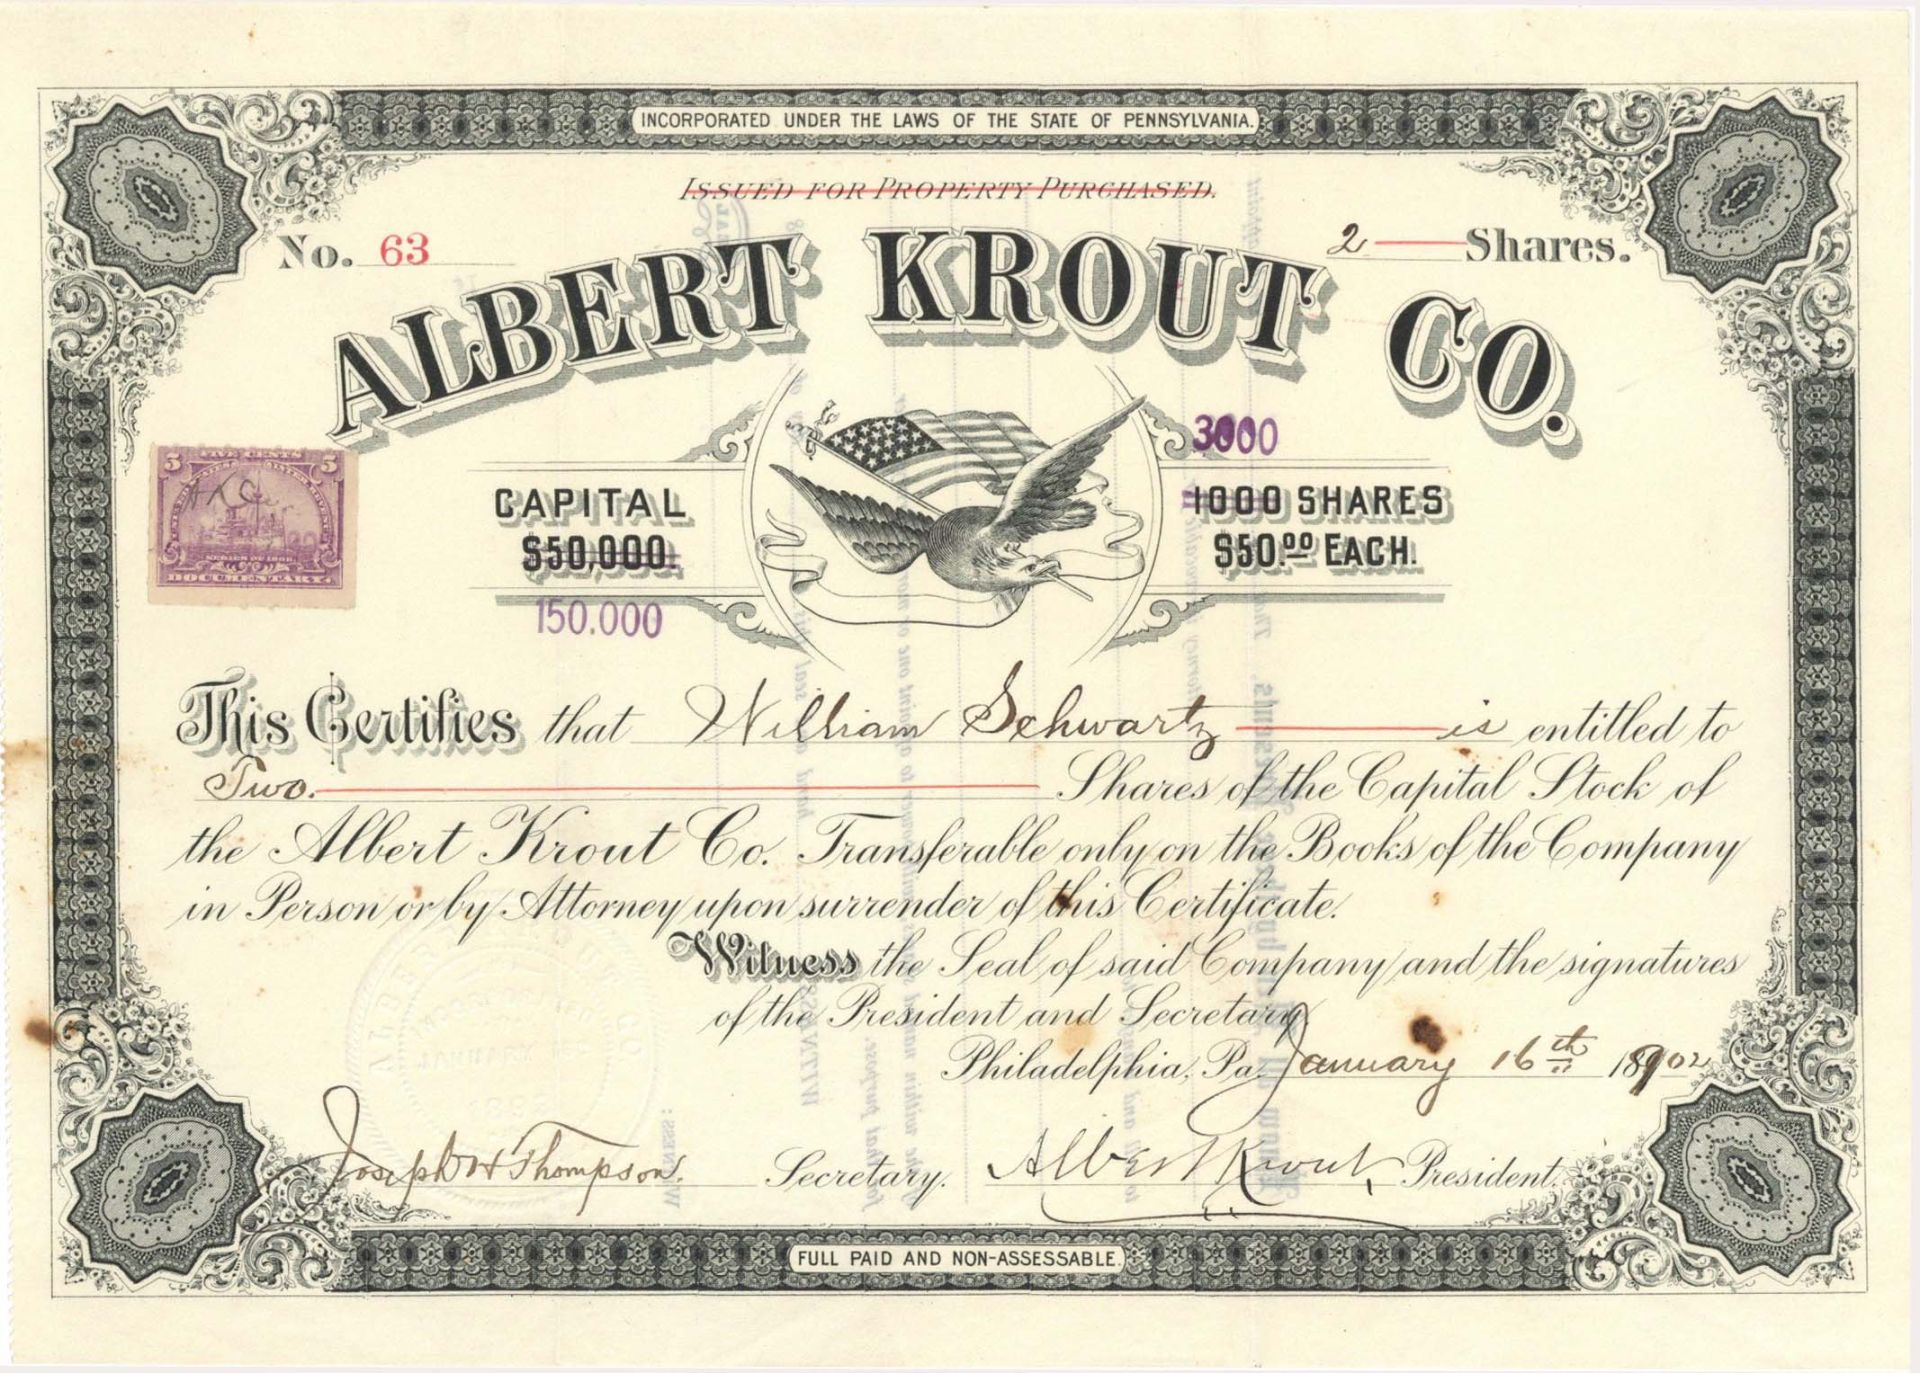 INCORPORATED UNDER THE LAWS OF THE STATE OF PENNSYLVANIA.
ISSUED FOR PROPERTY PURCHASED.
No. 63
2 Shares.
ALBERT KROUT CO.
5 FIVE CENTS 5
SERIES OF 1898
DOCUMENTARY
CAPITAL
$50,000.
150.000
3000
1000 SHARES
$50.00 EACH.
This Certifies that William Schwartz is entitled to
Two. Shares of the Capital Stock of
the Albert Krout Co. Transferable only on the Books of the Company
in Person or by Attorney upon surrender of this Certificate.
Witness the Seal of said Company and the signatures
of the President and Secretary
Philadelphia, Pa. January 16th 1902
Joseph H Thompson. Secretary. Albert Krout, President.
FULL PAID AND NON-ASSESSABLE.